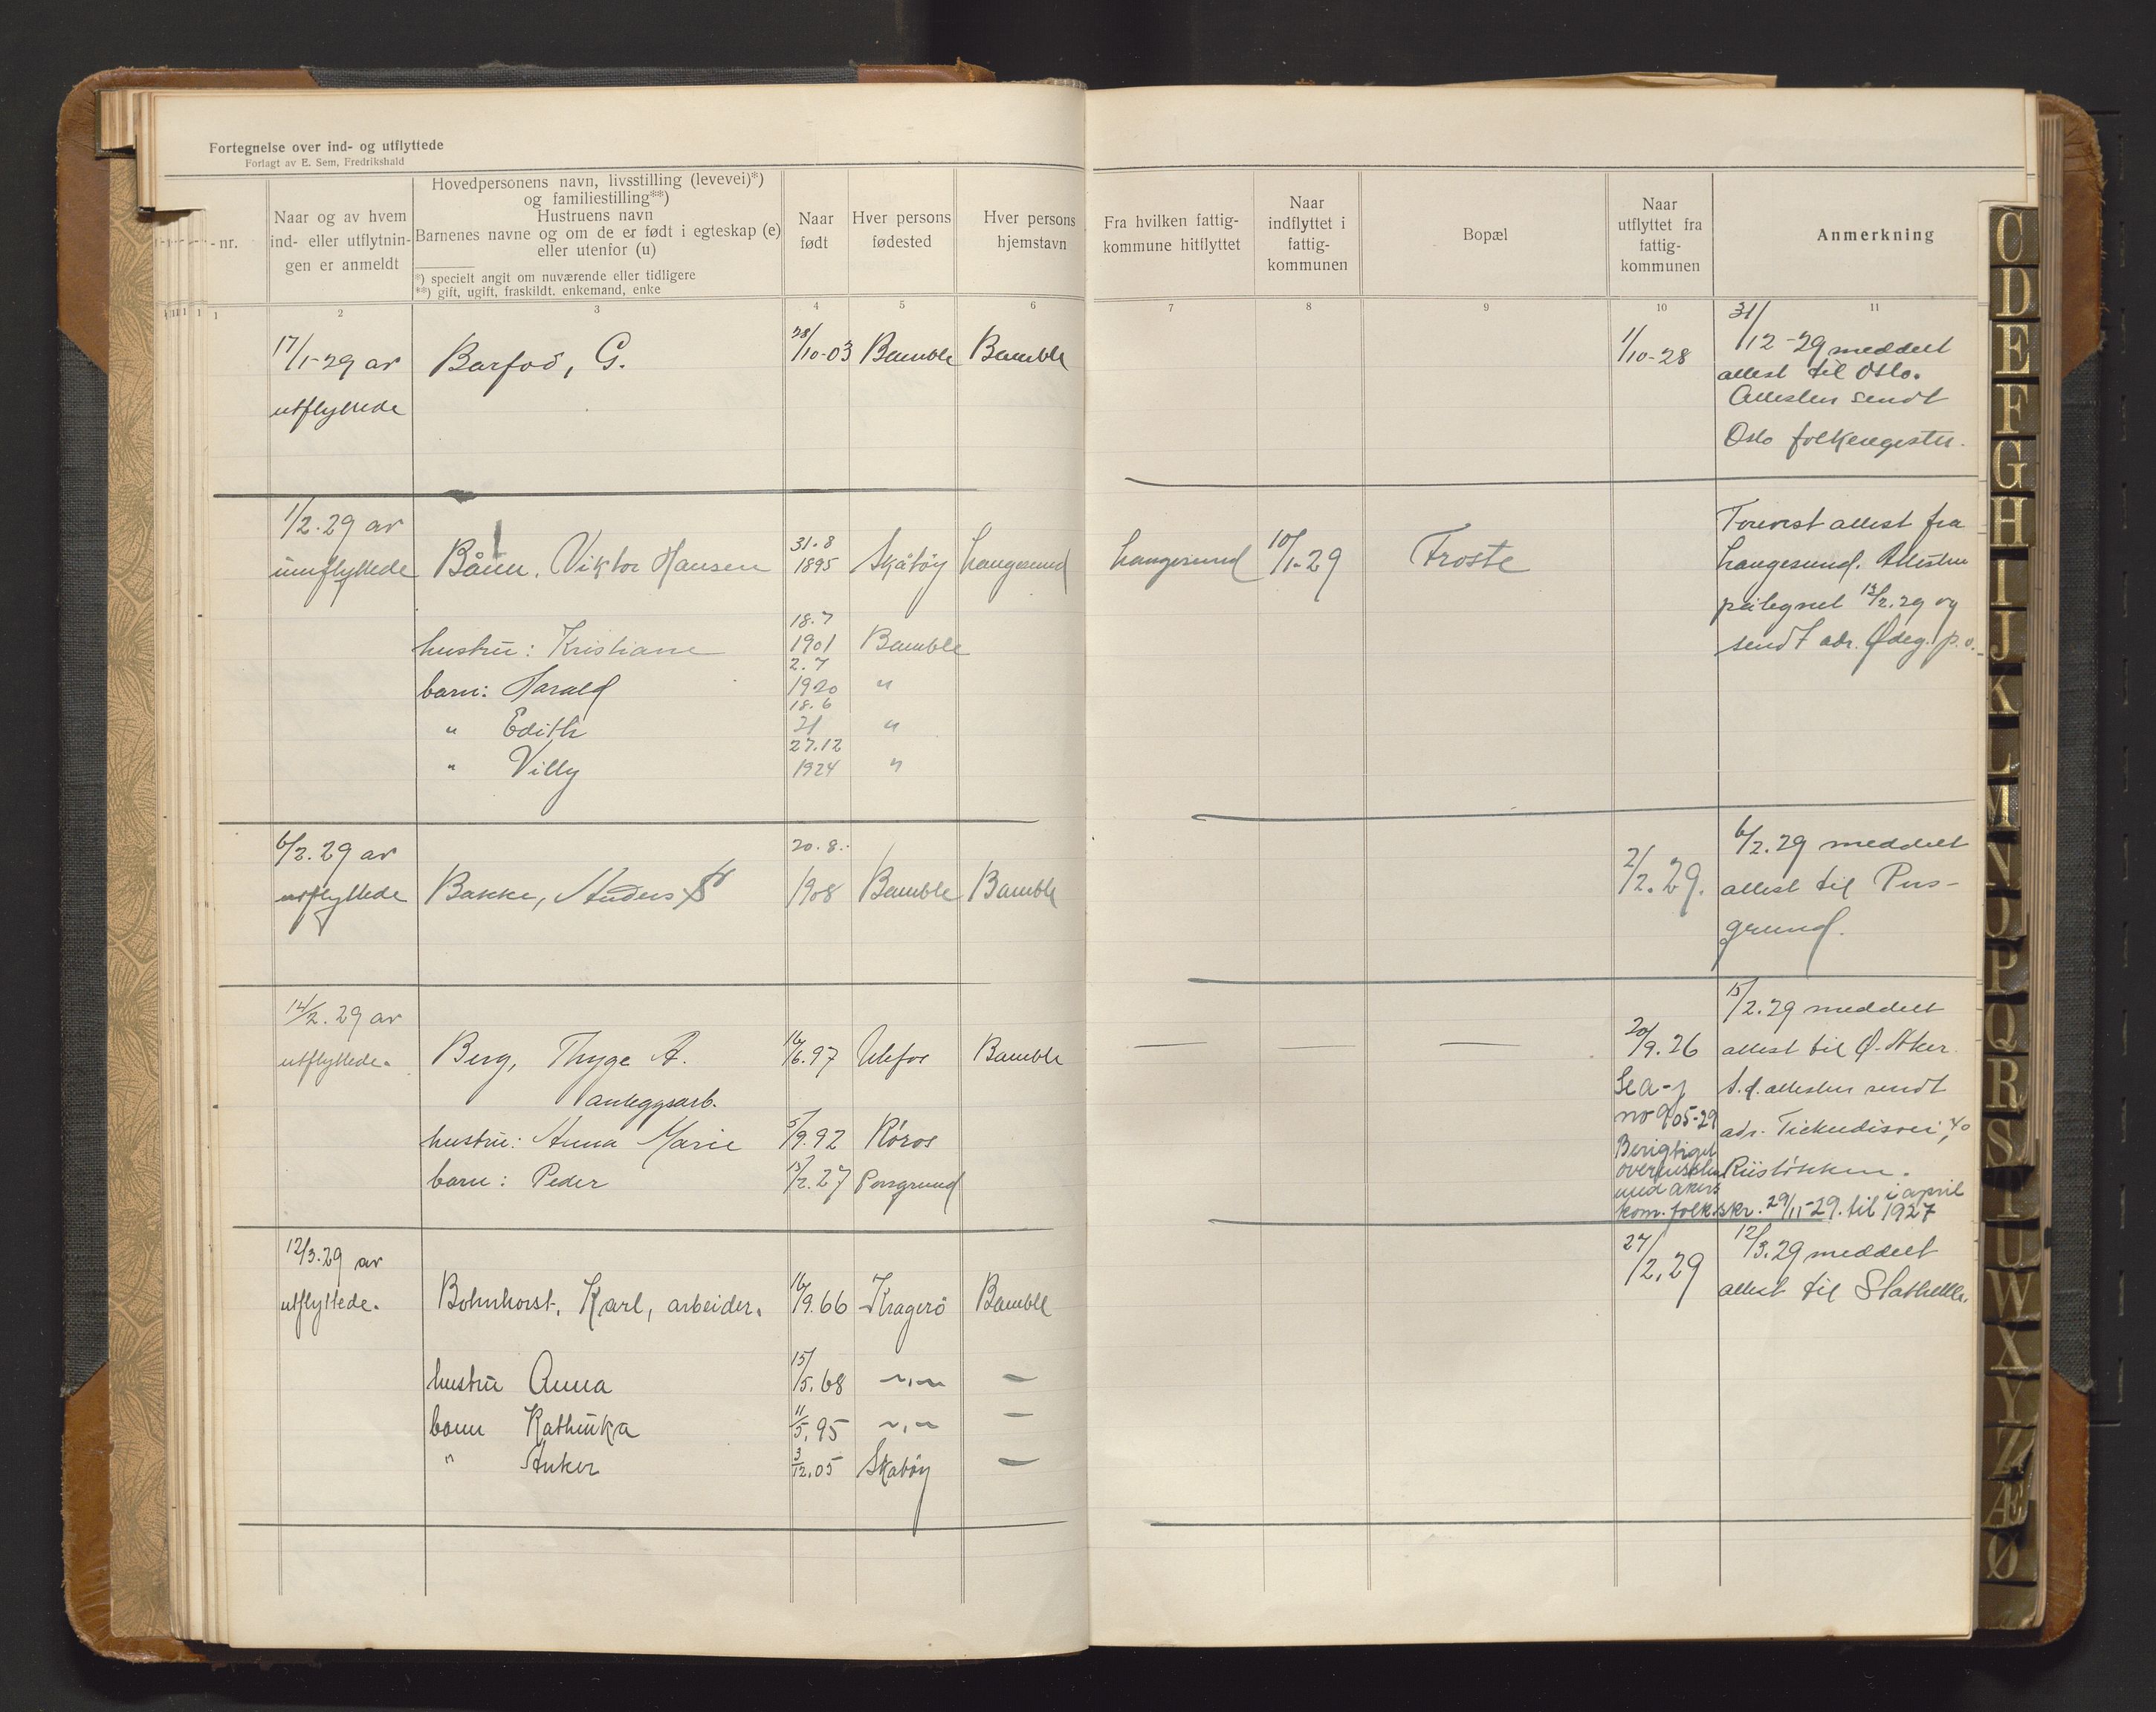 Fortegnelse over ind- og utflyttede
Forlagt av E. Sem, Fredrikshald
nr.
Naar og av hvem
ind- eller utflytnin-
gen er anmeldt
Hovedpersonens navn, livsstilling (levevei)*)
og familiestilling**)
Hustruens navn
Barnenes navne og om de er født i egteskap (e)
eller utenfor (u)
*) specielt angit om nuværende eller tidligere
**) gift, ugift, fraskildt. enkemand, enke
Naar
født
Hver persons
fødested
Hver persons
hjemstavn
Fra hvilken fattig-
kommune hitflyttet
Naar
indflyttet i
fattig-
kommunen
Bopæl
Naar
utflyttet fra
fattig-
kommunen
Anmerkning
1 2 3 4 5 6 7 8 9 10 11
17/1-29 av
utflyttede
Barfod, G.
28/10-03 Bamble Bamble
1/10-28
31/12-29 meddelt
attest til Oslo.
Attesten sendt
Oslo folkeregister.
1/2.29 av
innflyttede
Bånn, Viktor Hansen
31.8
1895 Skåtøy Langesund
Langesund 10/1-29 Froste
Forevist attest fra
Langesund. Attesten
påtegnet 13/2.29 og
sendt adr. Ødeg. p.o.
hustru: Kristiane
18.7
1901 Bamble
barn: Harald
2.7
1920 "
" Edith
18.6
21 "
" Villy
27.12
1924 "
6/2.29 av
utflyttede
Bakke, Anders
20.8.
1908 Bamble Bamble
2/2.29.
6/2.29 meddelt
attest til Pors-
grund.
14/2.29 av
utflyttede.
Berg, Thyge A.
anleggsarb.
16/6.97 Ulefos Bamble
— — —
20/9.26
Se a-j
no 905-29
Berigtiget
overensstem
med akers
kom. folk.skr. 29/11-29. til i april 1927
15/2.29 meddelt
attest til Ø. Aker.
S.d. attesten sendt
Riisløkken.
hustru: Anna Marie
5/9.92 Røros
barn: Peder
13/2.27 Porsgrund
12/3.29 av
utflyttede.
Bohnhorst, Karl, arbeider.
16/9.66 Kragerø Bamble
27/2.29
12/3.29 meddelt
attest til Stathelle.
hustru Anna
15/5.68 —„— —
barn Kathinka
11/5.95 —„— —
" Anker
3/12.05 Skåtøy —
C
D
E
F
G
H
I
J
K
L
M
N
O
P
Q
R
S
T
U
W
X
Y
Z
Æ
Ø